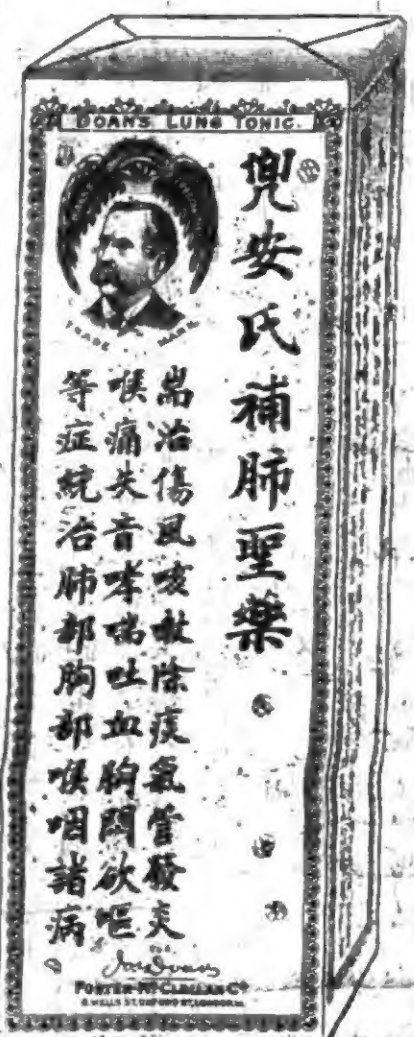 DOAN'S LUNG TONIC.
TRADE MARK
兜安氏補肺聖藥
耑治傷風咳嗽除痰氣管發炎
喉痛失音哮喘吐血胸悶欲嘔
等症統治肺部胸部喉咽諸病
FOSTER-McCLELLAN Co
8, WELLS ST. OXFORD ST. LONDON. W.